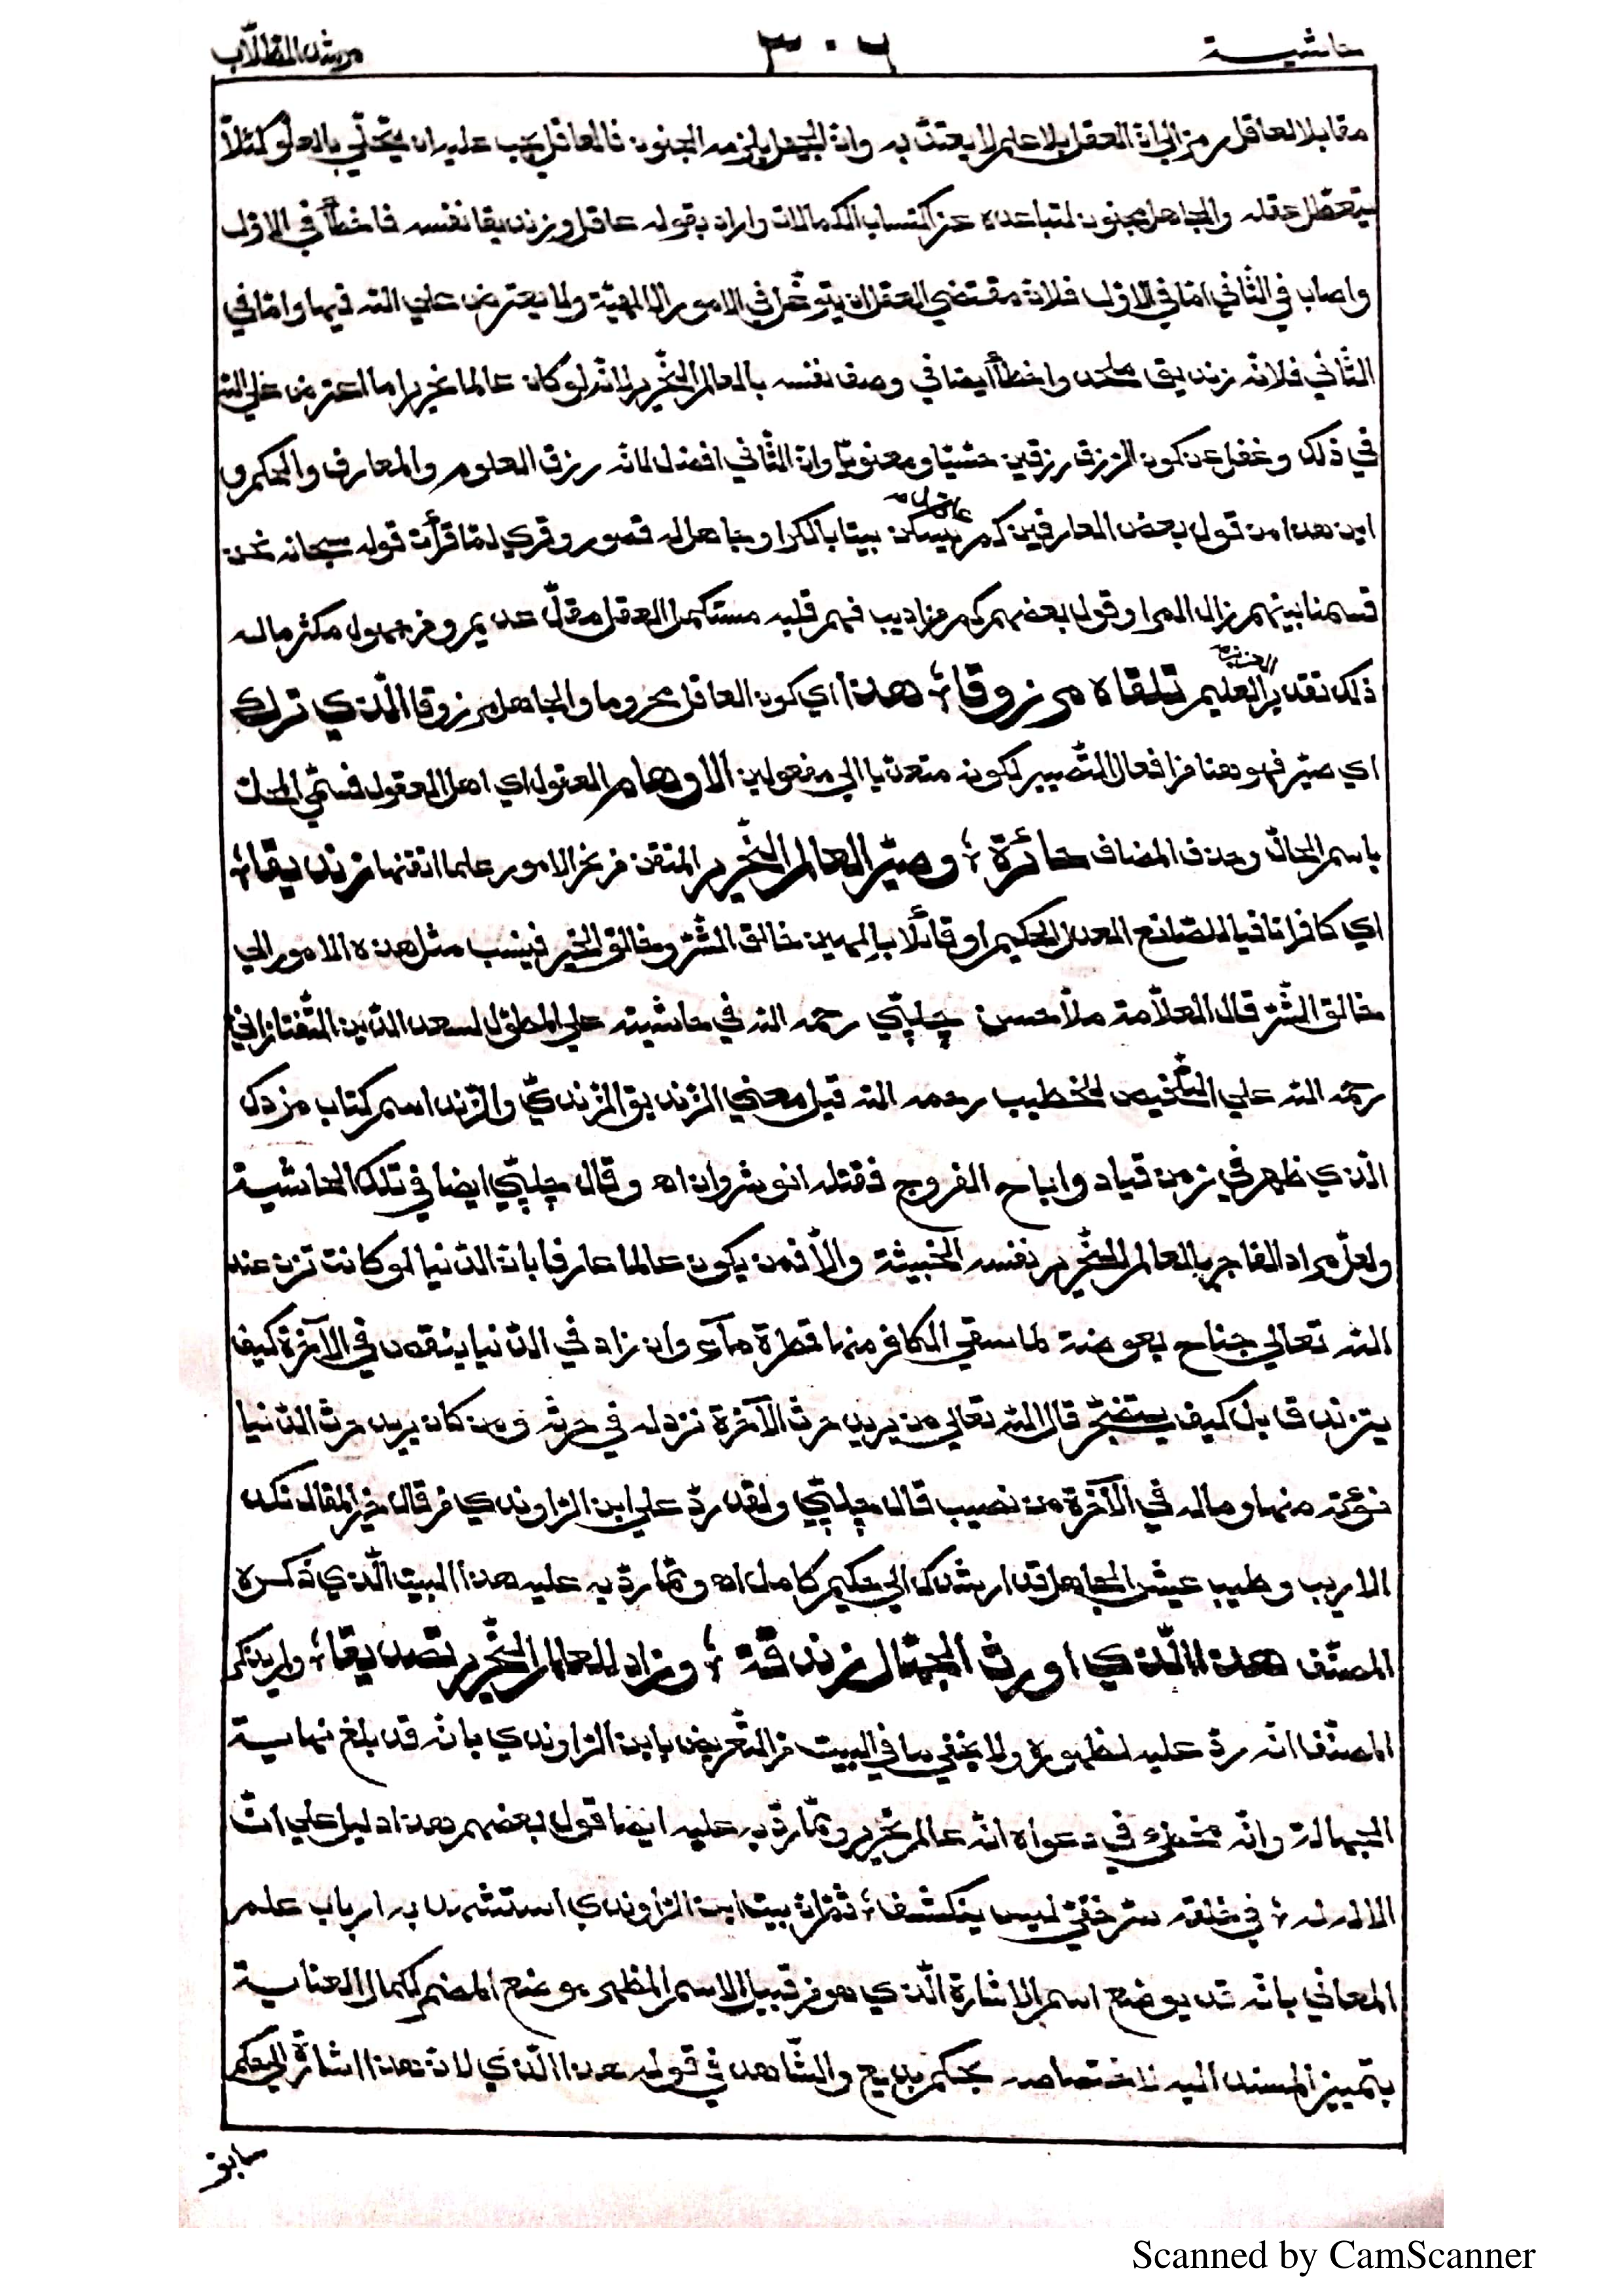 حاشية ٣٠٦ مرشد الطلاب
مقابلا لعاقل رمز الي ان العقل بلا علم لا يعتد به وان الجهل يلزمه الجنون فالعاقل يجب عليه ان يتحلي بالعلو كمثلا
يتعطل عقله والجاهل مجنون لتباعده عن اكتساب الكمالات واراد بقوله عاقل وزنديقا نفسه فاخطأ في الاول
واصاب في الثاني امّا في الاول فلان مقتضي العقل ان يتوغل في الامور الالهية ولا يعترض علي الله فيها وامّا في
الثّاني فلانّه زنديق ملحد واخطأ ايضا في وصف نفسه بالعالم النّحرير لانّه لو كان عالما نحريرا ما اعترض علي الله
في ذلك وغفل عن كون الرزق رزقين حسّيّا ومعنويّا وانّ الثّاني افضل لانّه رزق العلوم والمعارف والحكم و
اين هذا من قول بعض العارفين كم عاقل يسكن بيتا بالكرا وجاهل له قصور وقري لمّا قرأت قوله سبحانه نحن
قسمنا بينهم زال المرا وقول بعضهم كم من اديب فهم قلبه مستكمل العقل مقلّ عديم ومن جهول مكثر ماله
ذلك تقدير العزيز العليم تلقاه مرزوقا ؛ هذا اي كون العاقل محروما والجاهل مرزوقا الّذي ترك
اي صيّر فهو هنا من افعال التّصيير لكونه متعدّيا الي مفعولين الاوهام العقول اي اهل العقول فسمّي المحلّ
باسم الحالّ وحذف المضاف حائرة ؛ وصيّر العالم النّحرير المتقن من نحر الامور علما اتقنها زنديقا ؛
اي كافرا نافيا للصّانع العدل الحكيم او قائلا بالهين خالق الشّرّ وخالق الخير فينسب مثل هذه الامور الي
خالق الشّرّ قال العلّامة ملّا حسن چلپي رحمه الله في حاشيته علي المطوّل لسعد الدّين التّفتازاني
رحمه الله علي التّلخيص للخطيب رحمه الله قيل معني الزّنديق الزّنديّ والزّند اسم كتاب مزدك
الّذي ظهر في زمن قباد واباح الفروج فقتله انوشروان اه وقال چلپي ايضا في تلك الحاشية
ولعلّ مراد الفاجر بالعالم النّحرير نفسه الخبيثة والّا فمن يكون عالما عارفا بانّ الدّنيا لو كانت تزن عند
الله تعالي جناح بعوضة لما سقي الكافر منها قطرة مآء وان زاد في الدّنيا ينقص في الآخرة كيف
يتزندق بل كيف يتضجّر قال الله تعالي من يريد حرث الآخرة نزد له في حرثه ومن كان يريد حرث الدّنيا
نؤته منها وما له في الآخرة من نصيب قال چلپي ولقد ردّ علي ابن الرّاوندي من قال خير المقال نكد
الاريب وطيب عيش الجاهل قد ارشداك الي حكيم كامل اه وممّا ردّ به عليه هذا البيت الّذي ذكره
المصنّف هذا الّذي اورث الجهّال زندقة ؛ وزاد للعالم النّحرير تصديقا ؛ ولم يذكر
المصنّف انّه ردّ عليه لظهوره ولا يخفي ما في البيت من التّعريض بابن الرّاوندي بانّه قد بلغ نهاية
الجهالة وانّه مخطئ في دعواه انّه عالم نحرير وممّا ردّ به عليه ايضا قول بعضهم هذا دليل علي انّ
الاله له ؛ في خلقه سرّ خفيّ ليس ينكشف ؛ ثمّ انّ بيت ابن الرّاوندي استشهد به ارباب علم
المعاني بانّه قد يوضع اسم الاشارة الّذي هو من قبيل الاسم المظهر موضع المضمر لكمال العناية
بتمييز المسند اليه لاختصاصه بحكم بديع والشّاهد في قوله هذا الّذي لانّ هذا اشارة الي حكم
سابق
Scanned by CamScanner